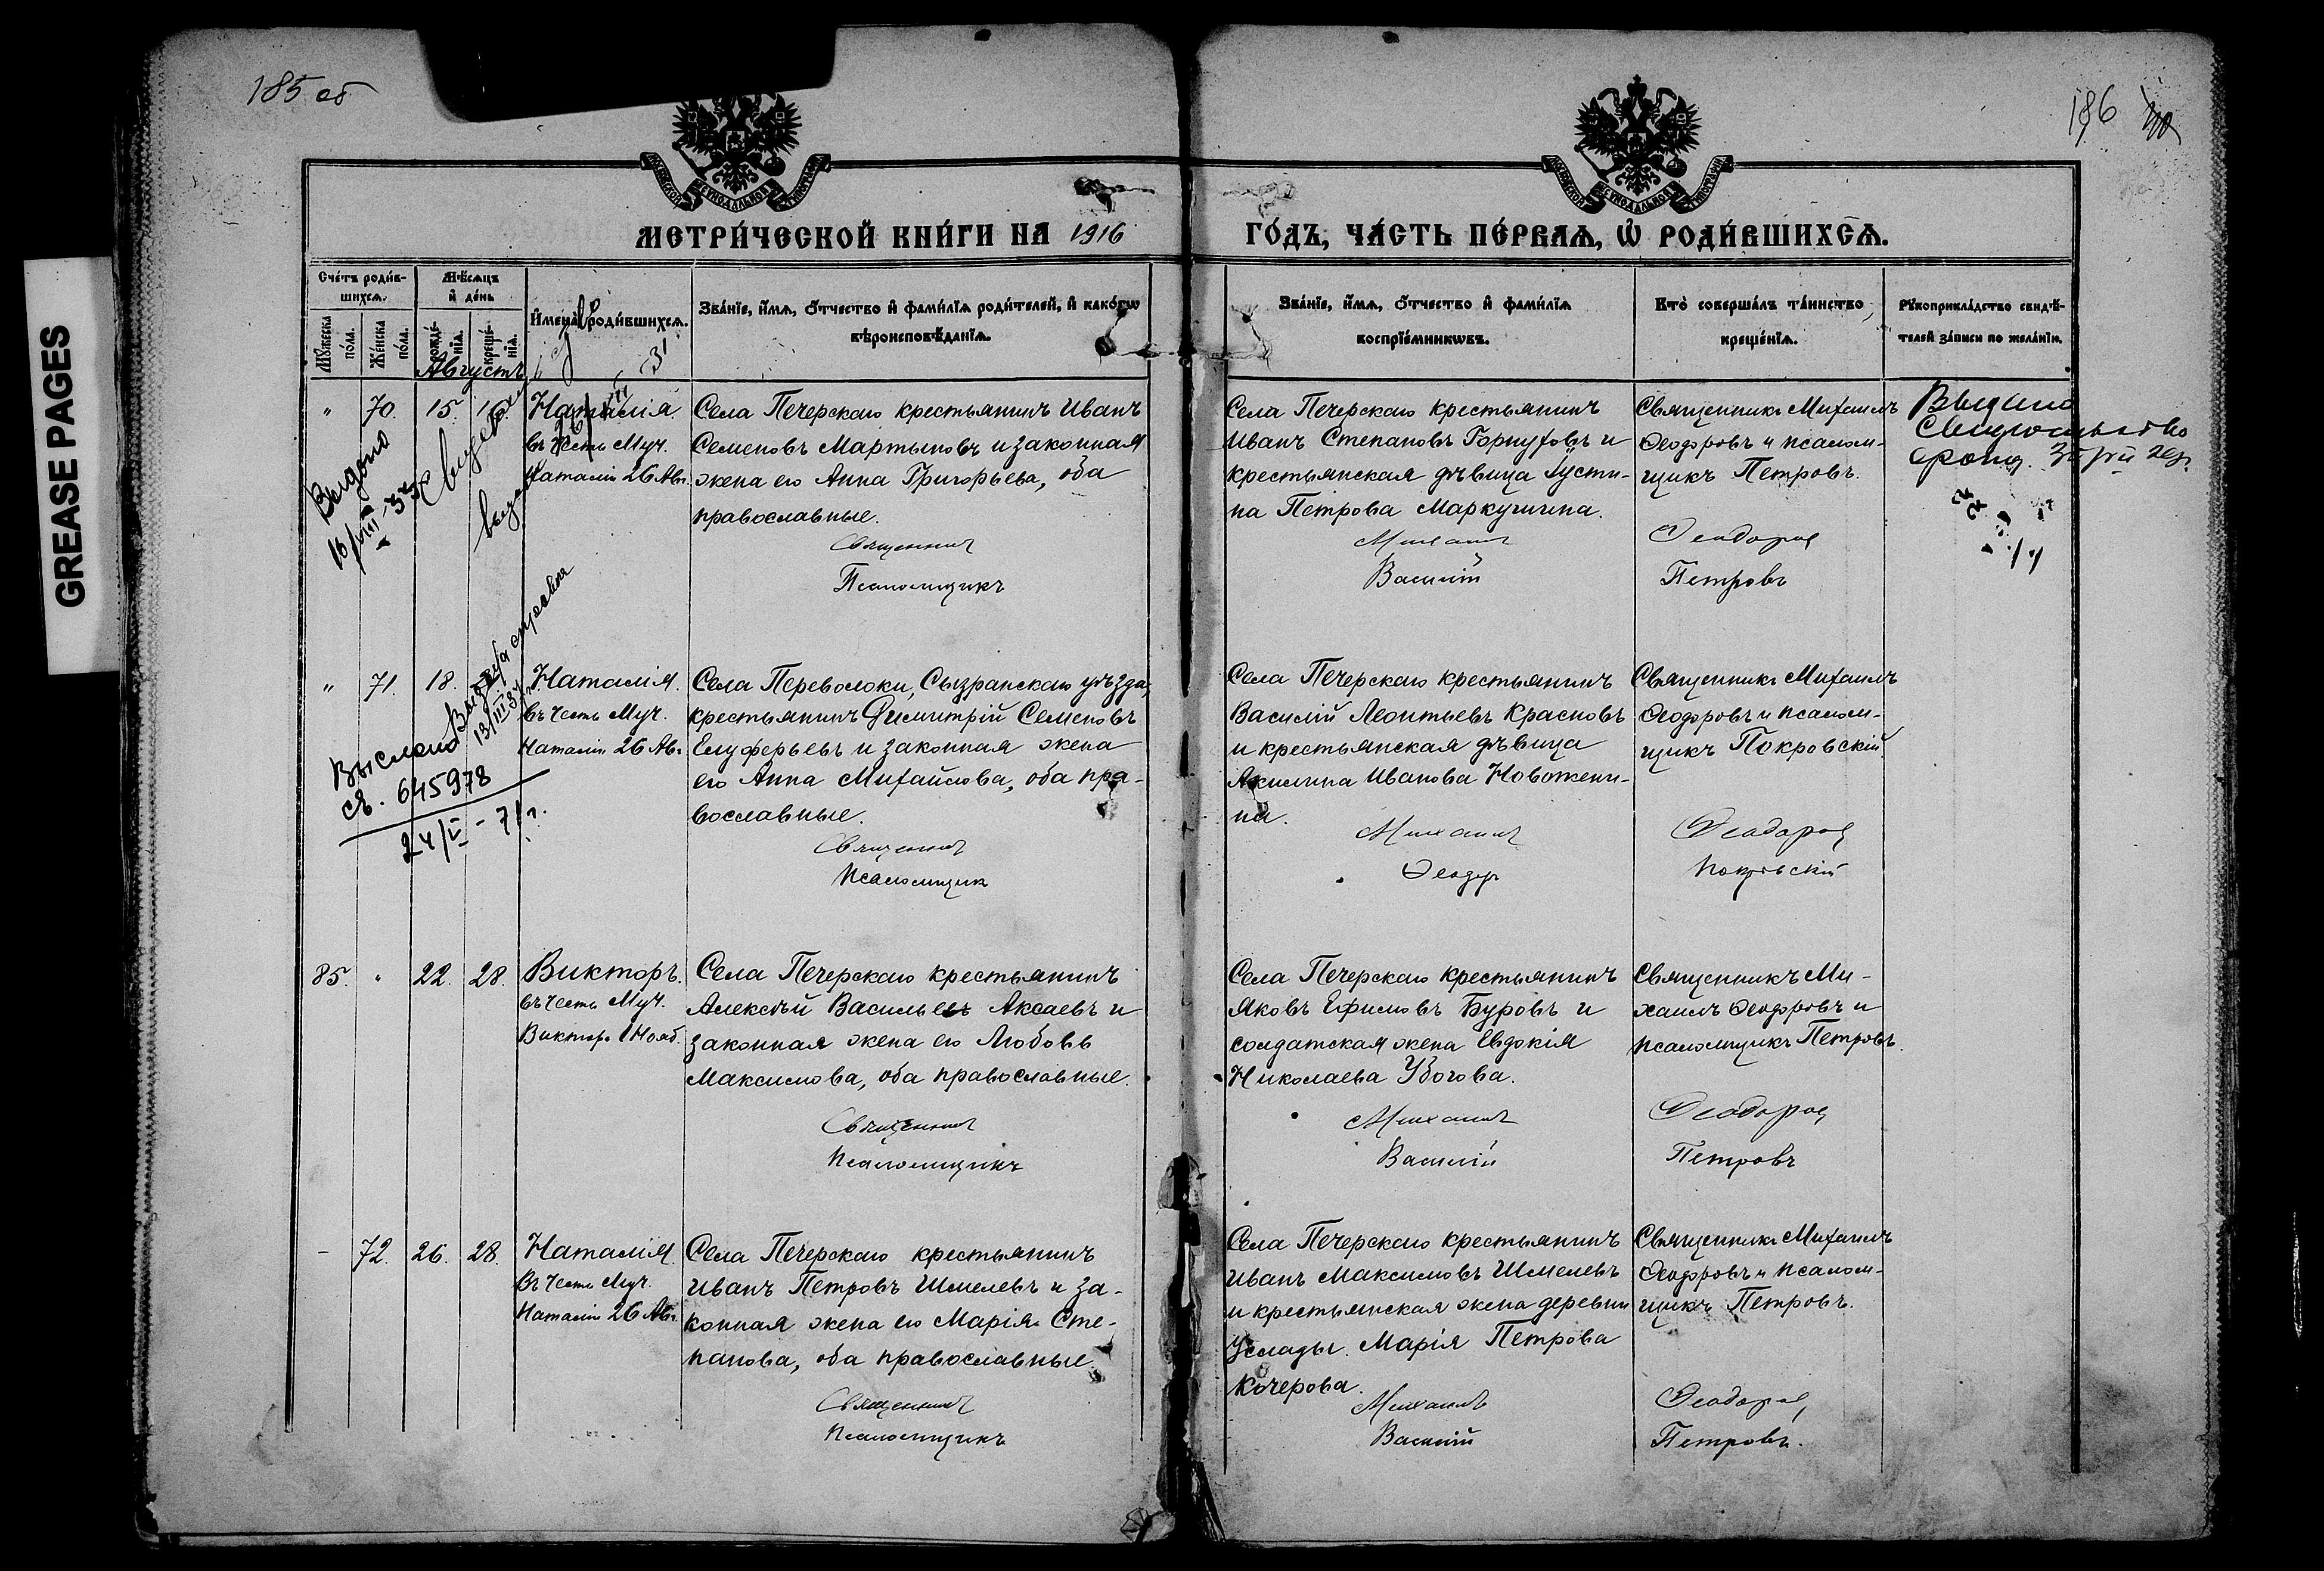 GREASE PAGES
185 об
186
МЕТРИ́ЧЕСКОЙ КНИ́ГИ НА 1916
ГО́ДЪ, ЧА́СТЬ ПЕ́РВАѦ, Ѡ҆ РОДИ́ВШИХСѦ.
Сче́тъ роди́в-
шихсѧ.
Мꙋ́жеска
по́ла.
Же́нска
по́ла.
Мѣ́сѧцъ
и҆ де́нь
рожде́-
нїѧ.
креще́-
нїѧ.
Августъ
И҆мена̀ роди́вшихсѧ.
Зва́нїе, и҆́мѧ, о҆́тчество и҆ фами́лїѧ роди́телей, и҆ како́гѡ
вѣроисповѣ́данїѧ.
Зва́нїе, и҆́мѧ, о҆́тчество и҆ фами́лїѧ
воспрїе́мникѡвъ.
Кто̀ соверша́лъ та́инство
креще́нїѧ.
Рꙋкоприкла́дство свидѣ́-
телей за́писи по жела́нїю.
" 70. 15. 16.
Наталія.
въ честь Муч.
Наталіи 26 Авг.
Села Печерскаго крестьянинъ Иванъ
Семеновъ Мартыновъ и законная
жена его Анна Григорьева, оба
православные.
Священникъ
Псаломщикъ
Села Печерскаго крестьянинъ
Иванъ Степановъ Горнуховъ и
крестьянская дѣвица Іусти-
на Петрова Маркушина.
Михаилъ
Василій
Священникъ Михаилъ
Ѳеодоровъ и псалом-
щикъ Петровъ.
Ѳеодоровъ
Петровъ
Выдано
Свидетельство
Выдано
16/VIII-32
" 71. 18.
Наталія.
въ честь Муч.
Наталіи 26 Авг.
Села Переволоки, Сызранскаго уѣзда,
крестьянинъ Димитрій Семеновъ
Елуферьевъ и законная жена
его Анна Михайлова, оба пра-
вославные.
Священникъ
Псаломщик
Села Печерскаго крестьянинъ
Василій Леонтьевъ Красновъ
и крестьянская дѣвица
Акилина Иванова Новожени-
на.
Михаилъ
Ѳеодоръ
Священникъ Михаилъ
Ѳеодоровъ и псалом-
щикъ Покровскій.
Ѳеодоровъ
Покровскій
Выдана справка
13/III 37
Выслано
св. 645978
24/V - 71 г.
85. " 22. 28.
Викторъ.
въ честь Муч.
Виктора 1 Нояб.
Села Печерскаго крестьянинъ
Алексѣй Васильевъ Аксаевъ и
законная жена его Любовь
Максимова, оба православные.
Священникъ
Псаломщикъ
Села Печерскаго крестьянинъ
Яковъ Ефимовъ Буровъ и
солдатская жена Евдокія
Николаева Убогова.
Михаилъ
Василій
Священникъ Ми-
хаилъ Ѳеодоровъ и
псаломщикъ Петровъ.
Ѳеодоровъ
Петровъ
- 72. 26. 28.
Наталія.
Въ честь Муч.
Наталіи 26 Авг.
Села Печерскаго крестьянинъ
Иванъ Петровъ Шмелевъ и за-
конная жена его Марія Сте-
панова, оба православные.
Священникъ
Псаломщикъ
Села Печерскаго крестьянинъ
Иванъ Максимовъ Шмелевъ
и крестьянская жена деревни
Услады Марія Петрова
Кочерова.
Михаилъ
Василій
Священникъ Михаилъ
Ѳеодоровъ и псалом-
щикъ Петровъ.
Ѳеодоровъ
Петровъ.